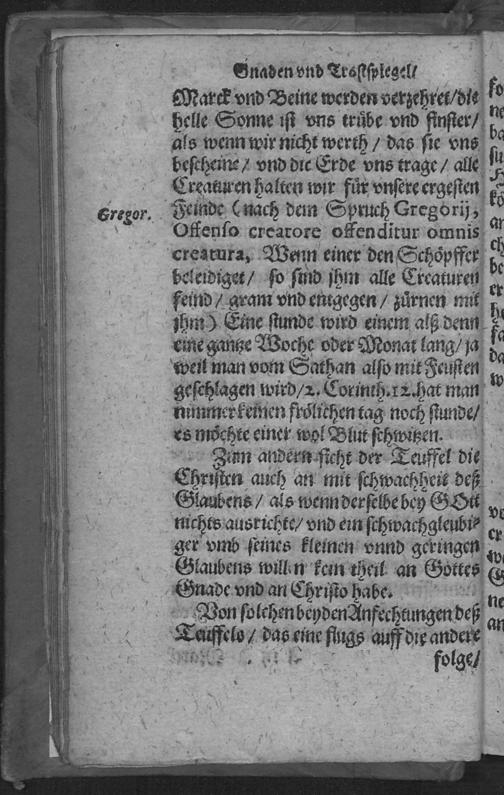 Gnaden vnd Trostspiegel/
Marck vnd Beine werden verzehret/die
helle Sonne ist vns trübe vnd finster/
als wenn wir nicht werth / das sie vns
bescheine/ vnd die Erde vns trage/ alle
Creaturen halten wir für vnsere ergesten
Gregor.
Feinde (nach dem Spruch Gregorij,
Offenso creatore offenditur omnis
creatura, Wenn einer den Schöpffer
beleidiget/ so sind jhm alle Creaturen
feind/ gram vnd entgegen/ zürnen mit
jhm) Eine stunde wird einem alß denn
eine gantze Woche oder Monat lang/ ja
weil man vom Sathan also mit Feusten
geschlagen wird/2. Corinth. 12. hat man
nimmer keinen frölichen tag noch stunde/
es möchte einer wol Blut schwitzen.
Zum andern ficht der Teuffel die
Christen auch an mit schwachheit deß
Glaubens/ als wenn derselbe bey GOtt
nichts ausrichte/ vnd ein schwachgleubi-
ger vmb seines kleinen vnnd geringen
Glaubens will n kein theil an Gottes
Gnade vnd an Christo habe.
Von solchen beyden Anfechtungen deß
Teuffels/ das eine flugs auff die andere
folge/